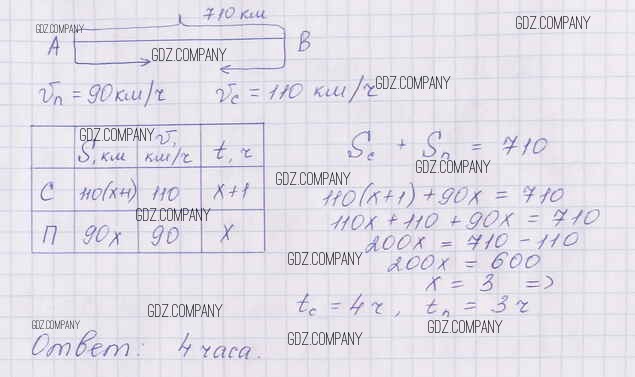 710 км
GDZ.COMPANY
GDZ.COMPANY
A GDZ.COMPANY B
vп = 90 км/ч vс = 110 км/ч GDZ.COMPANY
GDZ.COMPANY
S, км v, км/ч t, ч
С 110(x+1) 110 x+1
GDZ.COMPANY
П 90x 90 x
Sс + Sп = 710
GDZ.COMPANY
GDZ.COMPANY
110(x+1) + 90x = 710
110x + 110 + 90x = 710
200x = 710 - 110
GDZ.COMPANY
200x = 600
x = 3 =>
tс = 4 ч, tп = 3 ч
GDZ.COMPANY
GDZ.COMPANY
GDZ.COMPANY
GDZ.COMPANY
Ответ: 4 часа.